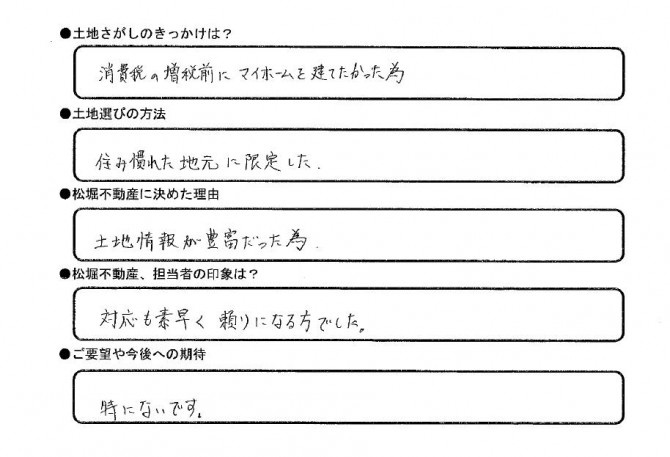 ●土地さがしのきっかけは？
消費税の増税前にマイホームを建てたかった為
●土地選びの方法
住み慣れた地元に限定した.
●松堀不動産に決めた理由
土地情報が豊富だった為.
●松堀不動産、担当者の印象は？
対応も素早く頼りになる方でした。
●ご要望や今後への期待
特にないです。